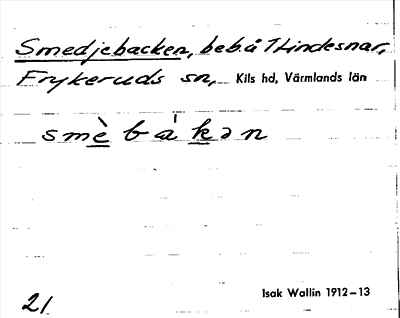 Smedjebacken, beb. å Lindesnar,
Frykeruds sn, Kils hd, Värmlands län
smè bákən
Isak Wallin 1912–13
21